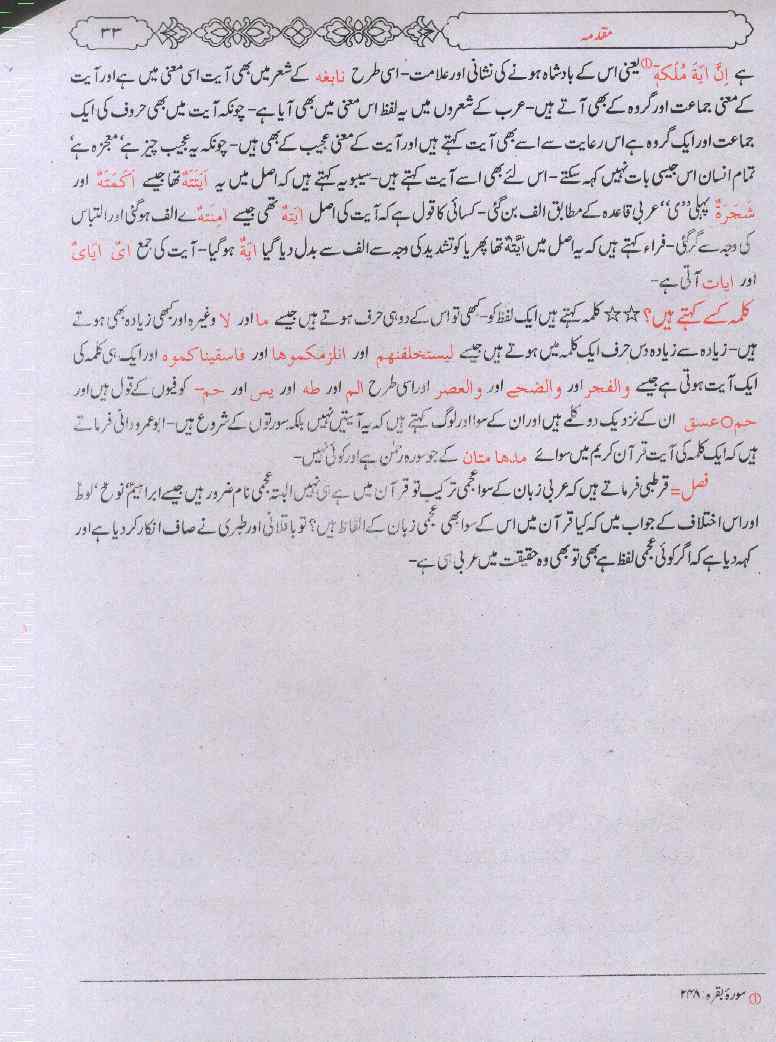 مقدمہ
۳۳
ہے اِنَّ اٰیَةَ مُلْكِهٖ① یعنی اس کے بادشاہ ہونے کی نشانی اور علامت- اسی طرح نابغہ کے شعر میں بھی آیت اسی معنی میں ہے اور آیت
کے معنی جماعت اور گروہ کے بھی آتے ہیں- عرب کے شعروں میں یہ لفظ اس معنی میں بھی آیا ہے- چونکہ آیت میں بھی حروف کی ایک
جماعت اور ایک گروہ ہے اس رعایت سے اسے بھی آیت کہتے ہیں اور آیت کے معنی عجیب کے بھی ہیں- چونکہ یہ عجیب چیز ہے‘ معجزہ ہے‘
تمام انسان اس جیسی بات نہیں کہہ سکتے- اس لئے بھی اسے آیت کہتے ہیں- سیبویہ کہتے ہیں کہ اصل میں یہ اَیَیَةٌ تھا جیسے اَكَمَةٌ اور
شَجَرَةٌ پہلی ’’ی‘‘ عربی قاعدہ کے مطابق الف بن گئی- کسائی کا قول ہے کہ آیت کی اصل اٰیِیَةٌ تھی جیسے اٰمِنَةٌ ے الف ہو گئی اور التباس
کی وجہ سے گر گئی- فراء کہتے ہیں کہ یہ اصل میں اَیَّةٌ تھا پھر یا کو تشدید کی وجہ سے الف سے بدل دیا گیا اٰیَةٌ ہو گیا- آیت کی جمع اٰیٌ اٰیَایٌ
اور ایات آتی ہے-
کلمہ کسے کہتے ہیں؟ ☆☆ کلمہ کہتے ہیں ایک لفظ کو- کبھی تو اس کے دو ہی حرف ہوتے ہیں جیسے ما اور لا وغیرہ اور کبھی زیادہ بھی ہوتے
ہیں- زیادہ سے زیادہ دس حرف ایک کلمہ میں ہوتے ہیں جیسے لیستخلفنهم اور انلزمکموها اور فاسقیناکموہ اور ایک ہی کلمہ کی
ایک آیت ہوتی ہے جیسے والفجر اور والضحے اور والعصر اور اسی طرح الم اور طه اور یس اور حم- کوفیوں کے قول ہیں اور
حم○عسق ان کے نزدیک دو کلمے ہیں اور ان کے سوا اور لوگ کہتے ہیں کہ یہ آیتیں نہیں بلکہ سورتوں کے شروع ہیں- ابو عمرو دانی فرماتے
ہیں کہ ایک کلمہ کی آیت قرآن کریم میں سوائے مدهامتان کے جو سورہ رحمٰن ہے اور کوئی نہیں-
فصل= قرطبی فرماتے ہیں کہ عربی زبان کے سوا عجمی ترکیب تو قرآن میں ہے ہی نہیں البتہ عجمی نام ضرور ہیں جیسے ابراہیمؑ‘ نوحؑ‘ لوطؑ
اور اس اختلاف کے جواب میں کہ کیا قرآن میں اس کے سوا بھی عجمی زبان کے الفاظ ہیں؟ تو باقلانی اور طبری نے صاف انکار کر دیا ہے اور
کہہ دیا ہے کہ اگر کوئی عجمی لفظ ہے بھی تو بھی وہ حقیقت میں عربی ہی ہے-
① سورۂ بقرہ: ۲۴۸